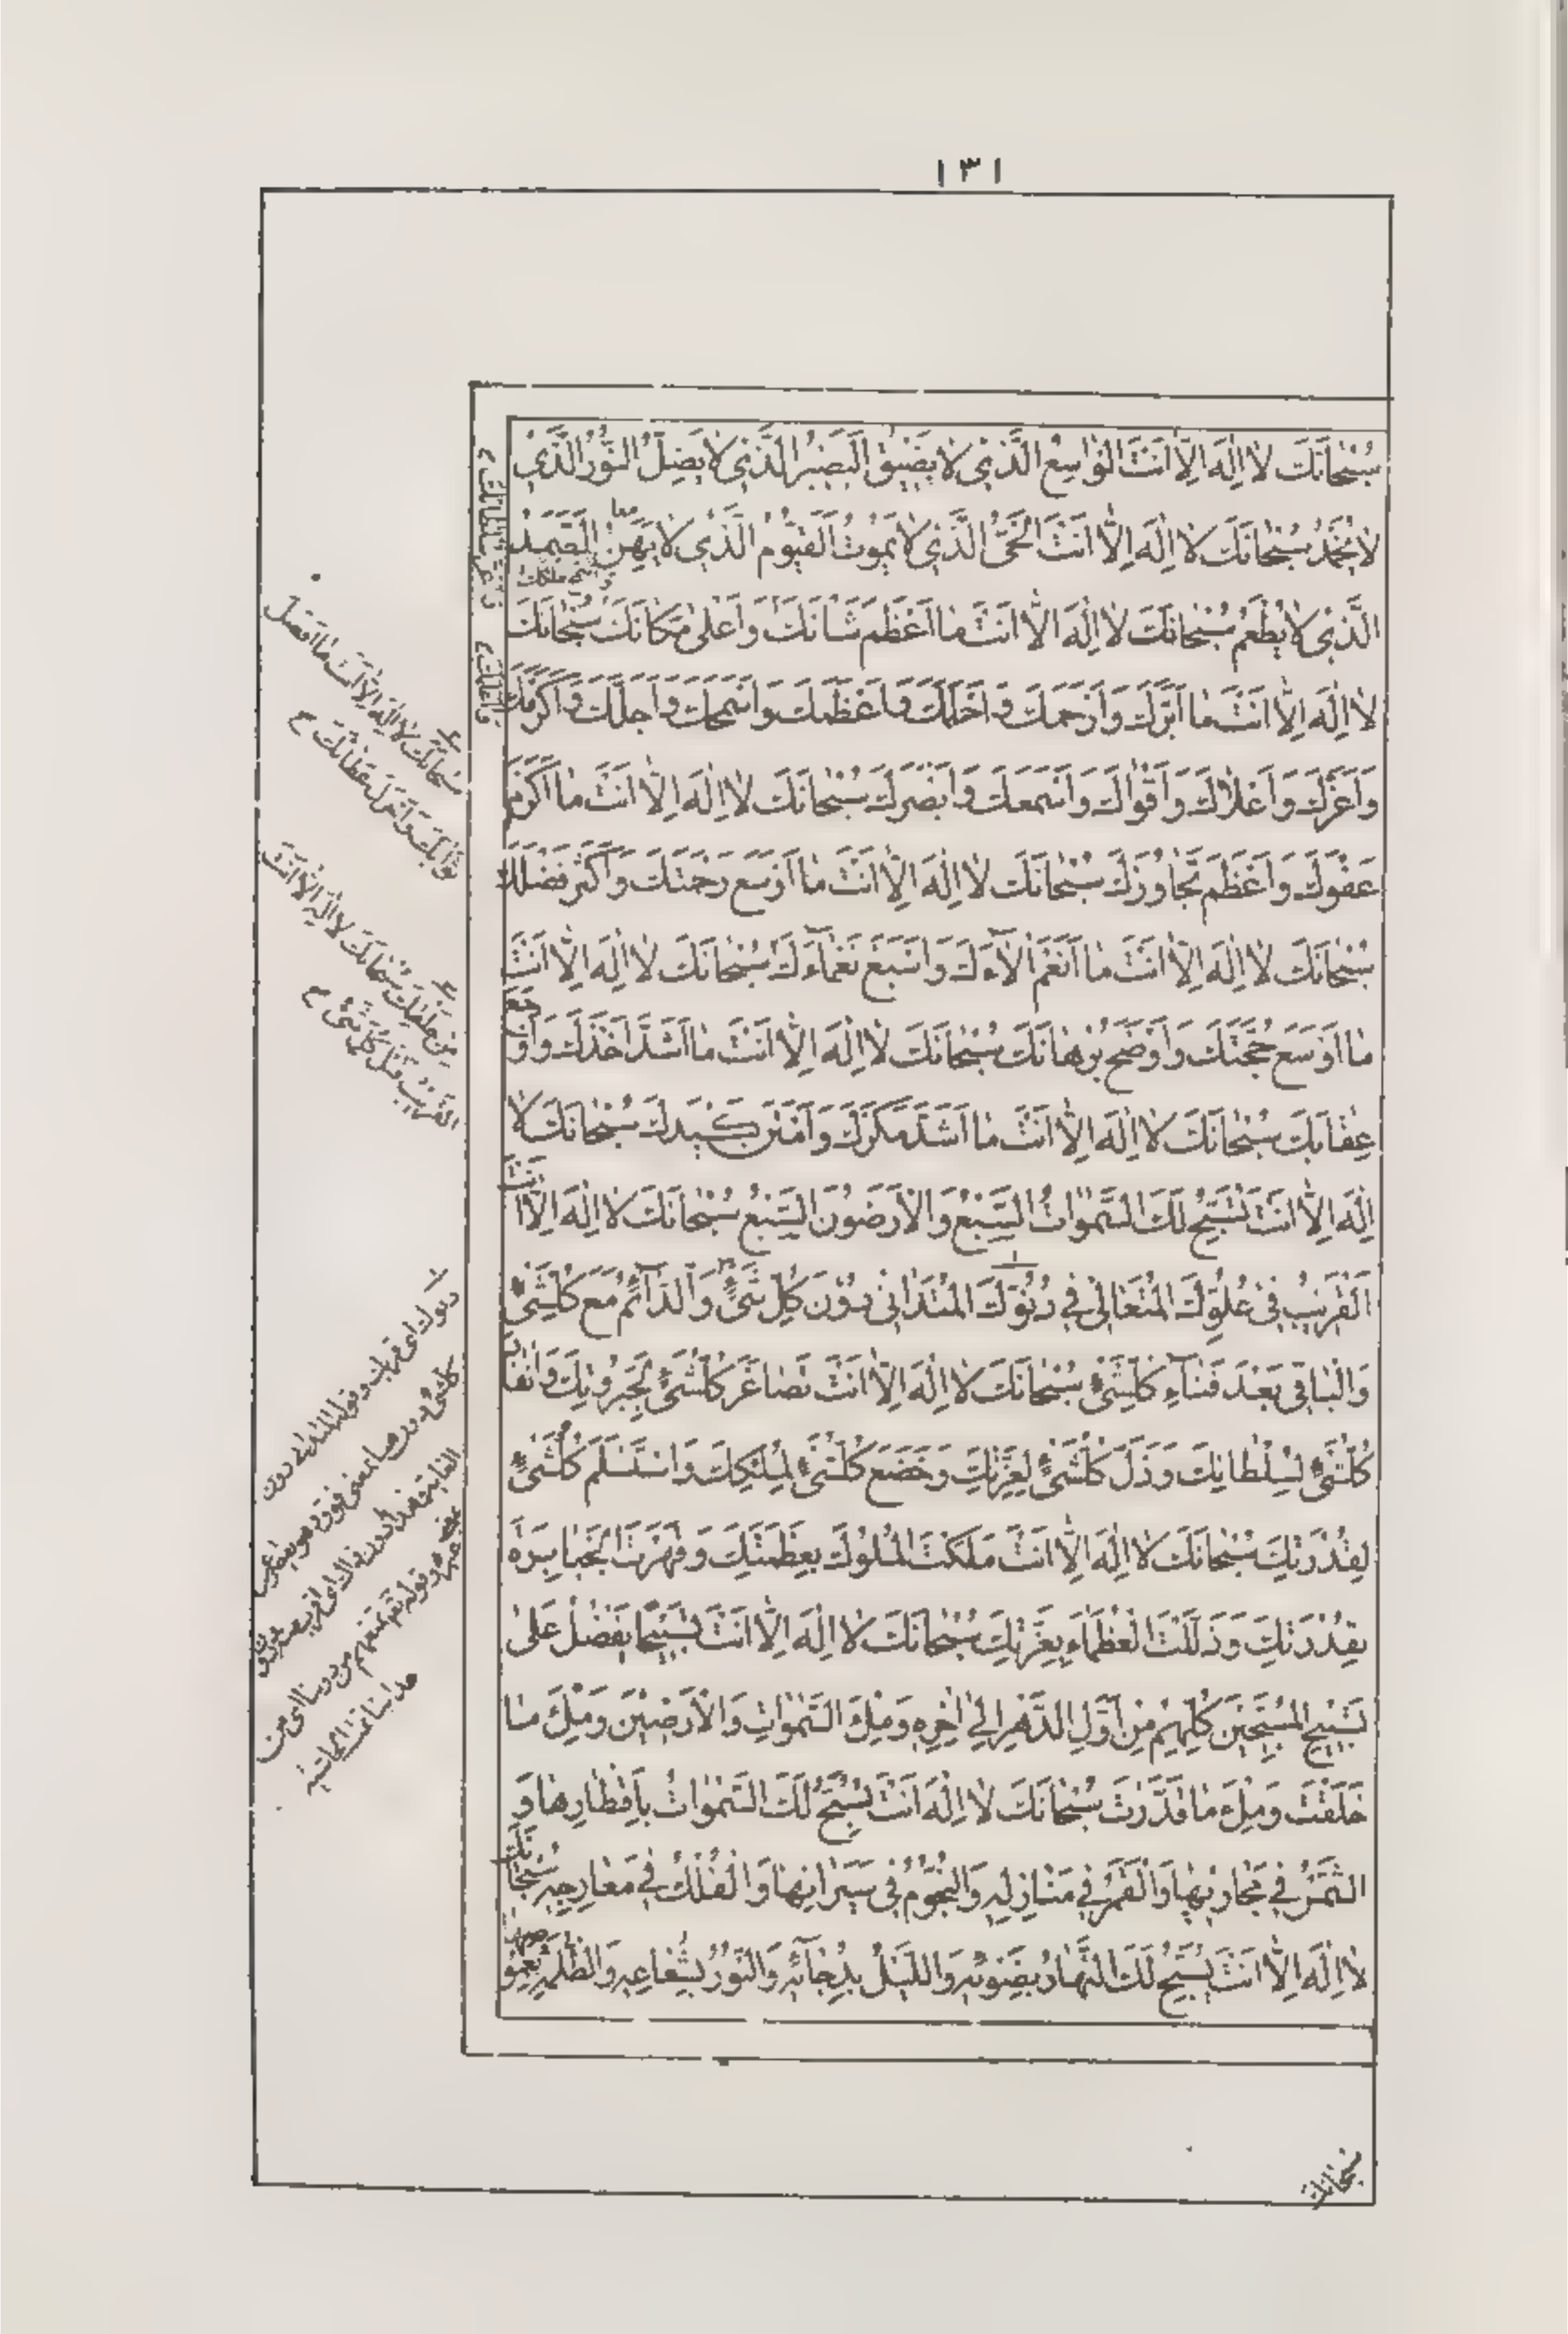 ١٣١
سُبْحَانَكَ لَا اِلٰهَ اِلَّا اَنْتَ الْوَاسِعُ الَّذِي لَا يَضِيقُ الْبَصِيرُ الَّذِي لَا يَضِلُّ النُّورُ الَّذِي
لَا يَخْمُدُ سُبْحَانَكَ لَا اِلٰهَ اِلَّا اَنْتَ الْحَيُّ الَّذِي لَا يَمُوتُ الْقَيُّومُ الَّذِي لَا يَهِنُ الصَّمَدُ
الَّذِي لَا يُطْعَمُ سُبْحَانَكَ لَا اِلٰهَ اِلَّا اَنْتَ مَا اَعْظَمَ شَانَكَ وَاَعْلٰى مَكَانَكَ سُبْحَانَكَ
وَاَشْمَخَ مُلْكَكَ
وَاَعَزَّ سُلْطَانَكَ
لَا اِلٰهَ اِلَّا اَنْتَ مَا اَبَرَّكَ وَاَرْحَمَكَ وَاَحْلَمَكَ وَاَعْظَمَكَ وَاَسْمَحَكَ وَاَجَلَّكَ وَاَكْرَمَكَ
وَاَعَزَّكَ وَاَعْلَاكَ وَاَقْوَاكَ وَاَسْمَعَكَ وَاَبْصَرَكَ سُبْحَانَكَ لَا اِلٰهَ اِلَّا اَنْتَ مَا اَكْرَمَ
عَفْوَكَ وَاَعْظَمَ تَجَاوُزَكَ سُبْحَانَكَ لَا اِلٰهَ اِلَّا اَنْتَ مَا اَوْسَعَ رَحْمَتَكَ وَاَكْثَرَ فَضْلَكَ
سُبْحَانَكَ لَا اِلٰهَ اِلَّا اَنْتَ مَا اَنْعَمَ اٰلَاءَكَ وَاَسْبَغَ نَعْمَاءَكَ سُبْحَانَكَ لَا اِلٰهَ اِلَّا اَنْتَ
مَا اَوْسَعَ حُجَّتَكَ وَاَوْضَحَ بُرْهَانَكَ سُبْحَانَكَ لَا اِلٰهَ اِلَّا اَنْتَ مَا اَشَدَّ اَخْذَكَ وَاَوْجَعَ
عِقَابَكَ سُبْحَانَكَ لَا اِلٰهَ اِلَّا اَنْتَ مَا اَشَدَّ مَكْرَكَ وَاَمْتَنَ كَيْدَكَ سُبْحَانَكَ لَا
اِلٰهَ اِلَّا اَنْتَ تُسَبِّحُ لَكَ السَّمٰوَاتُ السَّبْعُ وَالْاَرَضُونَ السَّبْعُ سُبْحَانَكَ لَا اِلٰهَ اِلَّا اَنْتَ
الْقَرِيبُ فِي عُلُوِّكَ الْمُتَعَالِي فِي دُنُوِّكَ الْمُتَدَانِي دُوْنَ كُلِّ شَيْءٍ وَالدَّائِمُ مَعَ كُلِّ شَيْءٍ
وَالْبَاقِي بَعْدَ فَنَاءِ كُلِّ شَيْءٍ سُبْحَانَكَ لَا اِلٰهَ اِلَّا اَنْتَ تَصَاغَرَ كُلُّ شَيْءٍ لِجَبَرُوتِكَ وَانْقَادَ
كُلُّ شَيْءٍ لِسُلْطَانِكَ وَذَلَّ كُلُّ شَيْءٍ لِعِزَّتِكَ وَخَضَعَ كُلُّ شَيْءٍ لِمُلْكِكَ وَاسْتَسْلَمَ كُلُّ شَيْءٍ
لِقُدْرَتِكَ سُبْحَانَكَ لَا اِلٰهَ اِلَّا اَنْتَ مَلَكْتَ الْمُلُوكَ بِعَظَمَتِكَ وَقَهَرْتَ الْجَبَابِرَةَ
بِقُدْرَتِكَ وَذَلَّلْتَ الْعُظَمَاءَ بِعِزَّتِكَ سُبْحَانَكَ لَا اِلٰهَ اِلَّا اَنْتَ تَسْبِيحًا يَفْضُلُ عَلٰى
تَسْبِيحِ الْمُسَبِّحِينَ كُلِّهِمْ مِنْ اَوَّلِ الدَّهْرِ اِلٰى اٰخِرِهِ وَمِلْءَ السَّمٰوَاتِ وَالْاَرَضِينَ وَمِلْءَ مَا
خَلَقْتَ وَمِلْءَ مَا قَدَّرْتَ سُبْحَانَكَ لَا اِلٰهَ اَنْتَ تُسَبِّحُ لَكَ السَّمٰوَاتُ بِاَقْطَارِهَا وَ
الشَّمْسُ فِي مَجَارِيهَا وَالْقَمَرُ فِي مَنَازِلِهِ وَالنُّجُومُ فِي سَيَرَانِهَا وَالْفُلْكُ فِي مَعَارِجِهِ سُبْحَانَكَ
لَا اِلٰهَ اِلَّا اَنْتَ يُسَبِّحُ لَكَ النَّهَارُ بِضَوْئِهِ وَاللَّيْلُ بِدُجَائِهِ وَالنُّورُ بِشُعَاعِهِ وَالظُّلْمَةُ بِغُمُوضِهَا
سُبْحَانَكَ لَا اِلٰهَ اِلَّا اَنْتَ مَا اَفْضَلَ
ثَوَابَكَ وَاَجْزَلَ عَطَائَكَ
مِنْ خَلْقِكَ سُبْحَانَكَ لَا اِلٰهَ اِلَّا اَنْتَ
الْقَرِيبُ قَبْلَ كُلِّ شَيْءٍ
سُبْحَانَكَ